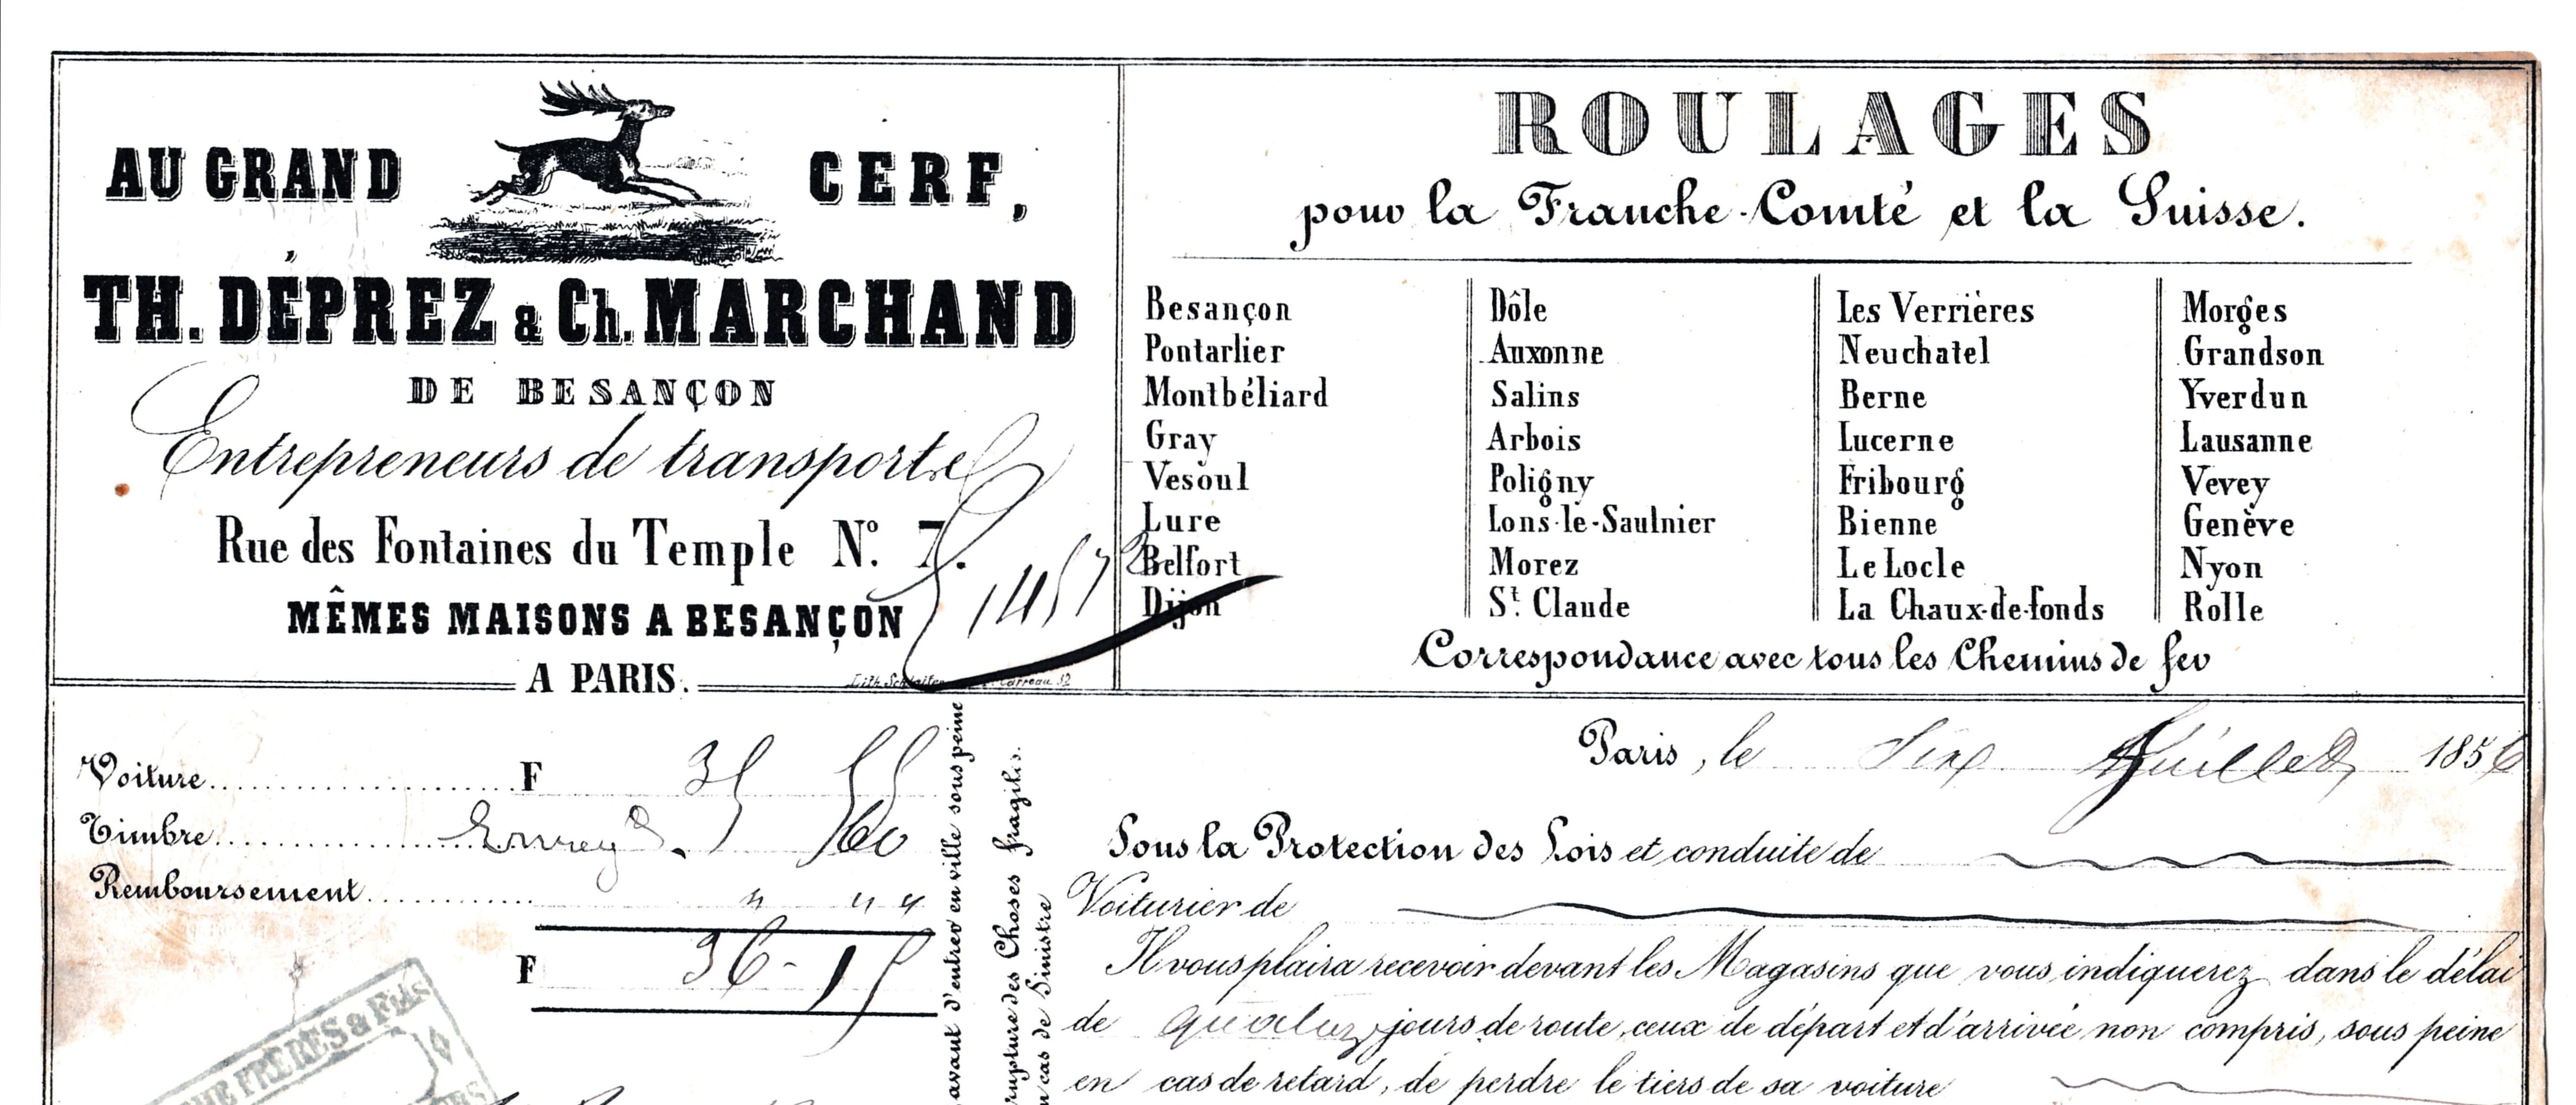 AU GRAND CERF,
TH. DÉPREZ & Ch. MARCHAND
DE BESANÇON
Entrepreneurs de transports
Rue des Fontaines du Temple N° 7.
MÊMES MAISONS A BESANÇON
A PARIS.
ROULAGES
pour la Franche-Comté et la Suisse.
Besançon
Pontarlier
Montbéliard
Gray
Vesoul
Lure
Belfort
Dijon
Dôle
Auxonne
Salins
Arbois
Poligny
Lons-le-Saulnier
Morez
St. Claude
Les Verrières
Neuchatel
Berne
Lucerne
Fribourg
Bienne
Le Locle
La Chaux-de-fonds
Morges
Grandson
Yverdun
Lausanne
Vevey
Genève
Nyon
Rolle
Correspondance avec tous les Chemins de fer
Voiture F 35 55
Timbre 60
Remboursement " " "
F 36-15
avant d'entrer en ville sous peine
rupture des Choses fragiles.
n cas de Sinistre
Paris, le Six Juillet 1856
Sous la Protection des Lois et conduite de
Voiturier de
Il vous plaira recevoir devant les Magasins que vous indiquerez dans le délai
de jours de route, ceux de départ et d'arrivée non compris, sous peine
en cas de retard, de perdre le tiers de sa voiture
FRÈRES & FILS